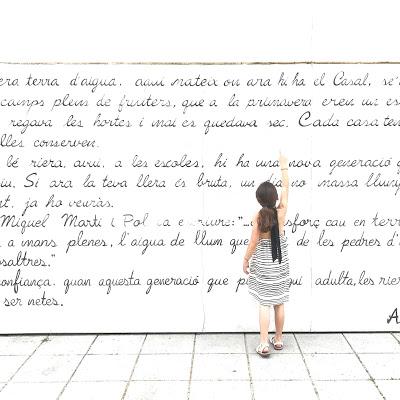 era terra d'aigua, aquí mateix on ara hi ha el Casal, se'
camps plens de fruiters, que a la primavera eren un es
regava les hortes i mai es quedava sec. Cada casa ten
lles conserven.
bé riera, avui, a les escoles, hi ha una nova generació q
iu. Si ara la teva llera és bruta, un dia no massa lluny
nt, ja ho veuràs.
Miquel Martí i Pol va escriure: "... esforç cau en terr
a mans plenes, l'aigua de llum que de les pedres d'
osaltres."
confiança: quan aquesta generació que aquí adulta, les rier
ser netes.
A